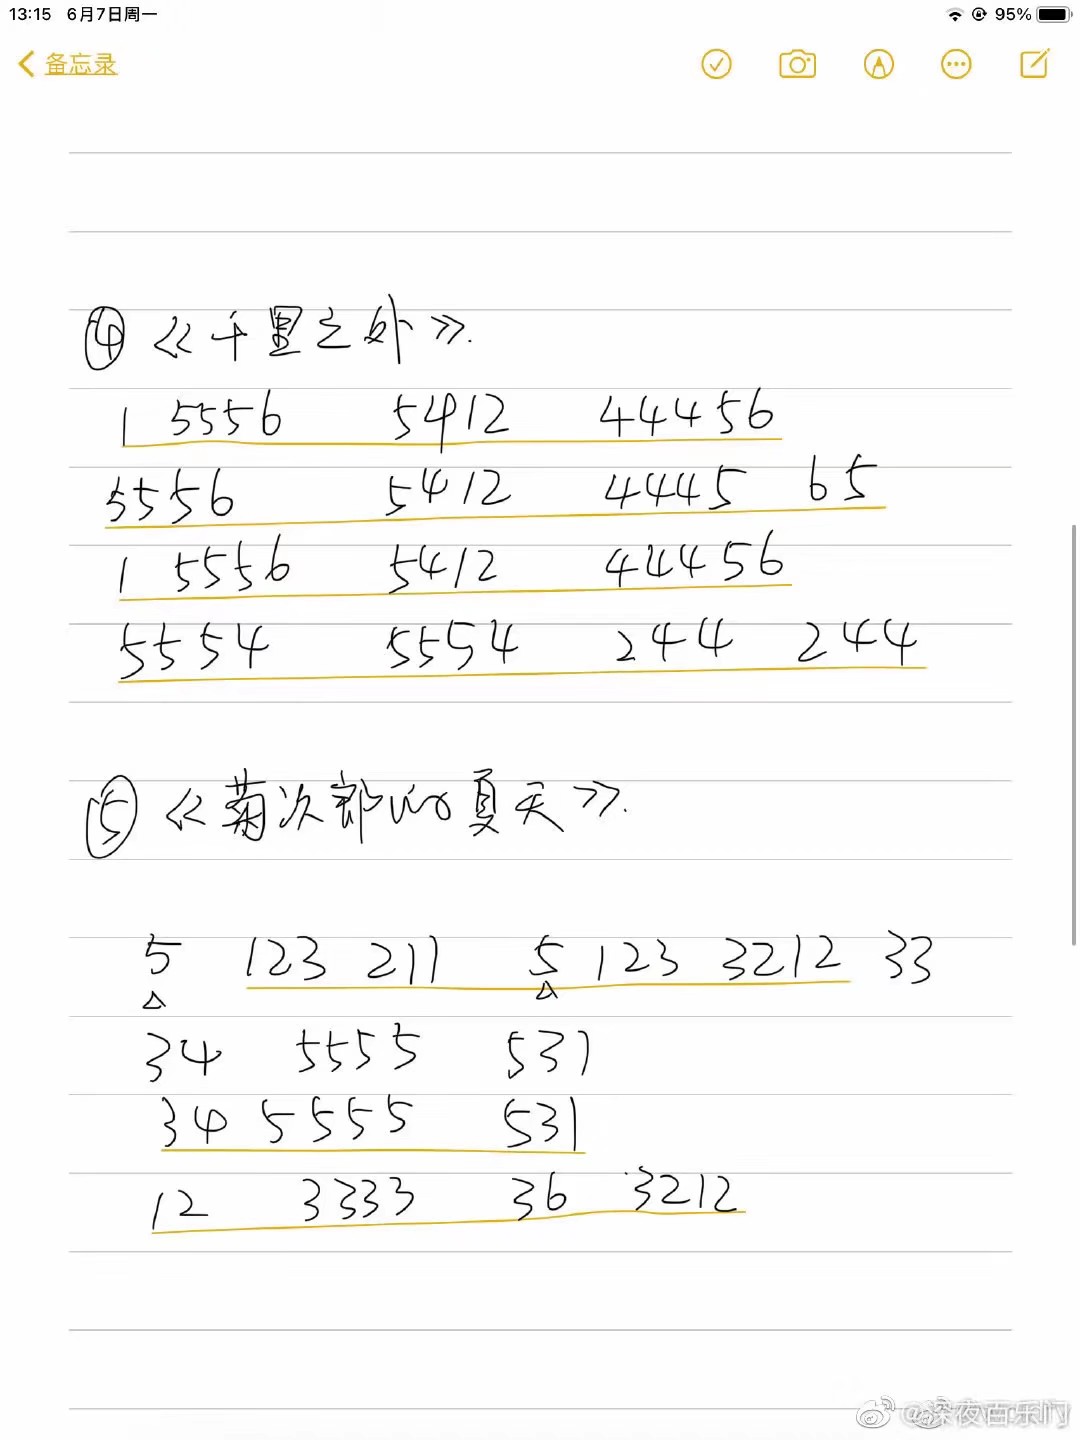 13:15 6月7日周一 95%
备忘录
④《千里之外》.
1 5556 5412 44456
5556 5412 4445 65
1 5556 5412 44456
5554 5554 244 244
⑤《菊次郎的夏天》.
5 123 211 5 123 3212 33
34 5555 531
34 5555 531
12 3333 36 3212
@深夜百乐门